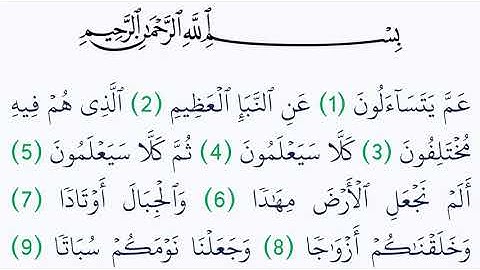 بِسْمِ ٱللَّهِ ٱلرَّحْمَٰنِ ٱلرَّحِيمِ
عَمَّ يَتَسَآءَلُونَ (1) عَنِ ٱلنَّبَإِ ٱلْعَظِيمِ (2) ٱلَّذِى هُمْ فِيهِ
مُخْتَلِفُونَ (3) كَلَّا سَيَعْلَمُونَ (4) ثُمَّ كَلَّا سَيَعْلَمُونَ (5)
أَلَمْ نَجْعَلِ ٱلْأَرْضَ مِهَٰدًا (6) وَٱلْجِبَالَ أَوْتَادًا (7)
وَخَلَقْنَٰكُمْ أَزْوَٰجًا (8) وَجَعَلْنَا نَوْمَكُمْ سُبَاتًا (9)